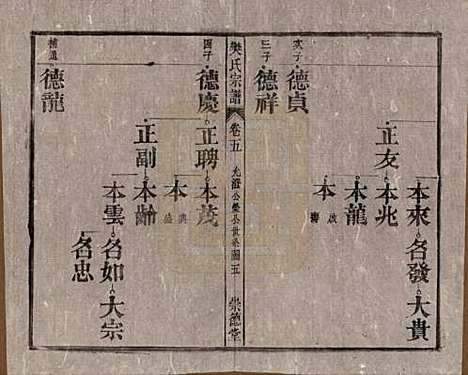 次子
德貞
三子
德祥
正友
本來
本兆
本龍
本
啟
壽
名發
大貴
樊氏宗譜
卷五
世系圖五
崇德堂
四子
德慶
德龍
正聘
正副
本茂
本
本齡
本雲
名如
名忠
大宗